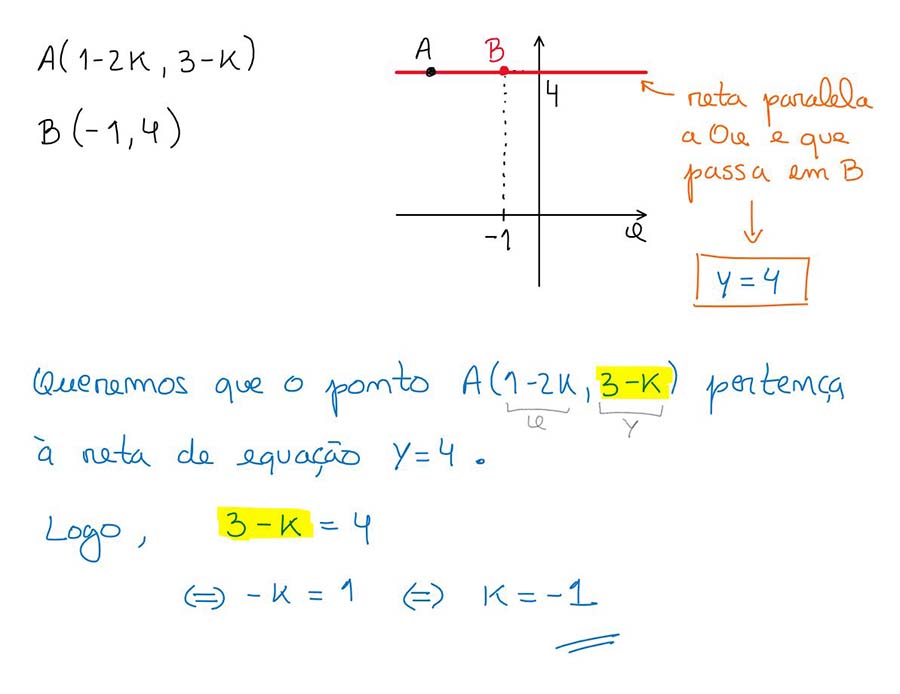 A(1-2k, 3-k)
B(-1,4)
A
B
4
-1
x
reta paralela
a Ox e que
passa em B
y=4
Queremos que o ponto A(1-2k, 3-k) pertença
x
y
à reta de equação y=4.
Logo, 3-k = 4
⇔ -k = 1 ⇔ k = -1